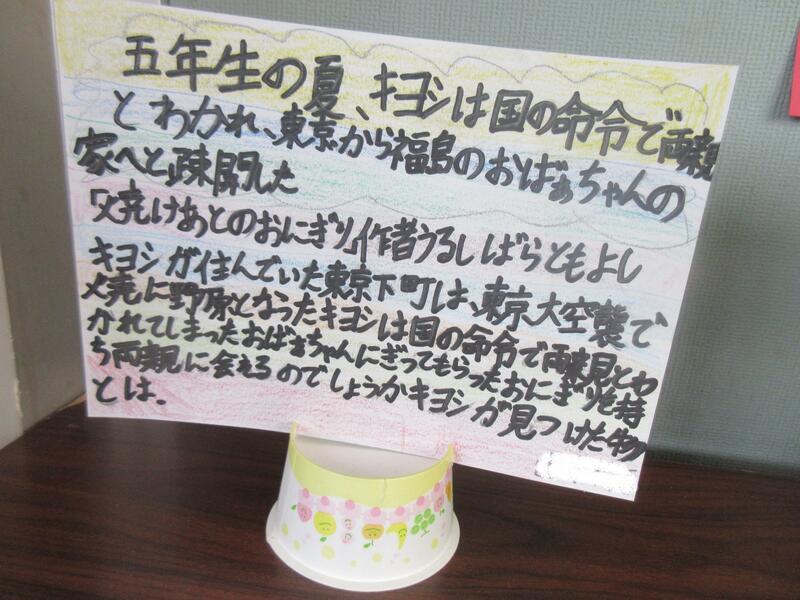 五年生の夏、キヨシは国の命令で両親
とわかれ、東京から福島のおばぁちゃんの
家へと疎開した
「焼けあとのおにぎり」作者うるしばらともよし
キヨシが住んでいた東京下町は、東京大空襲で
焼に野原となったキヨシは国の命令で両親とわ
かれてしまったおばぁちゃんににぎってもらったおにぎりを持
ち両親に会えるのでしょうかキヨシが見つけた物
とは.